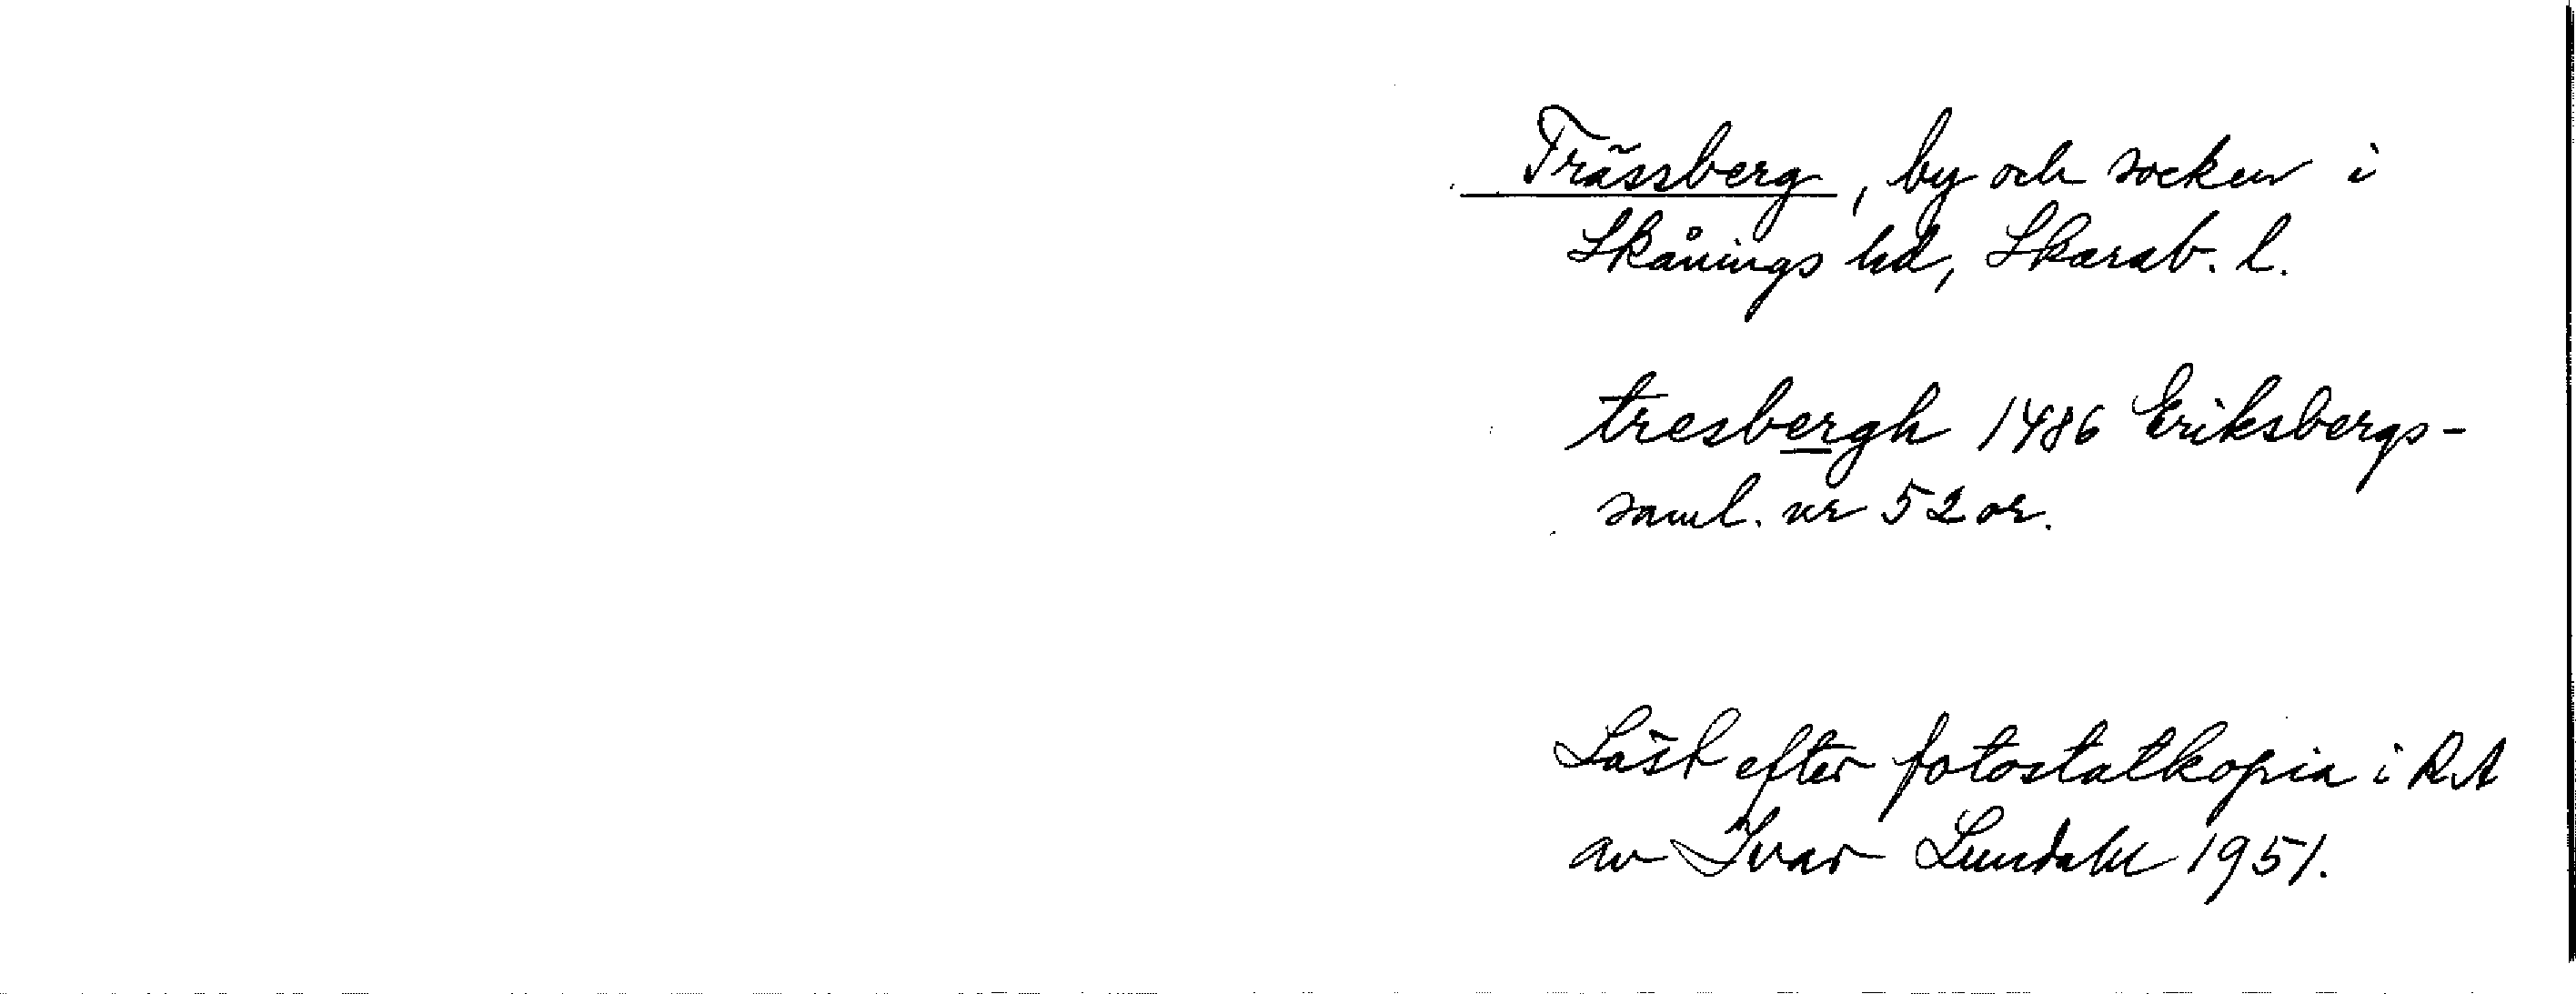 Trässberg, by och socken i
Skånings hd, Skarab. l.
tresbergh 1486 Eriksbergs-
saml. nr 52 or.
Läst efter fotostatkopia i RA
av Ivar Lundahl 1951.